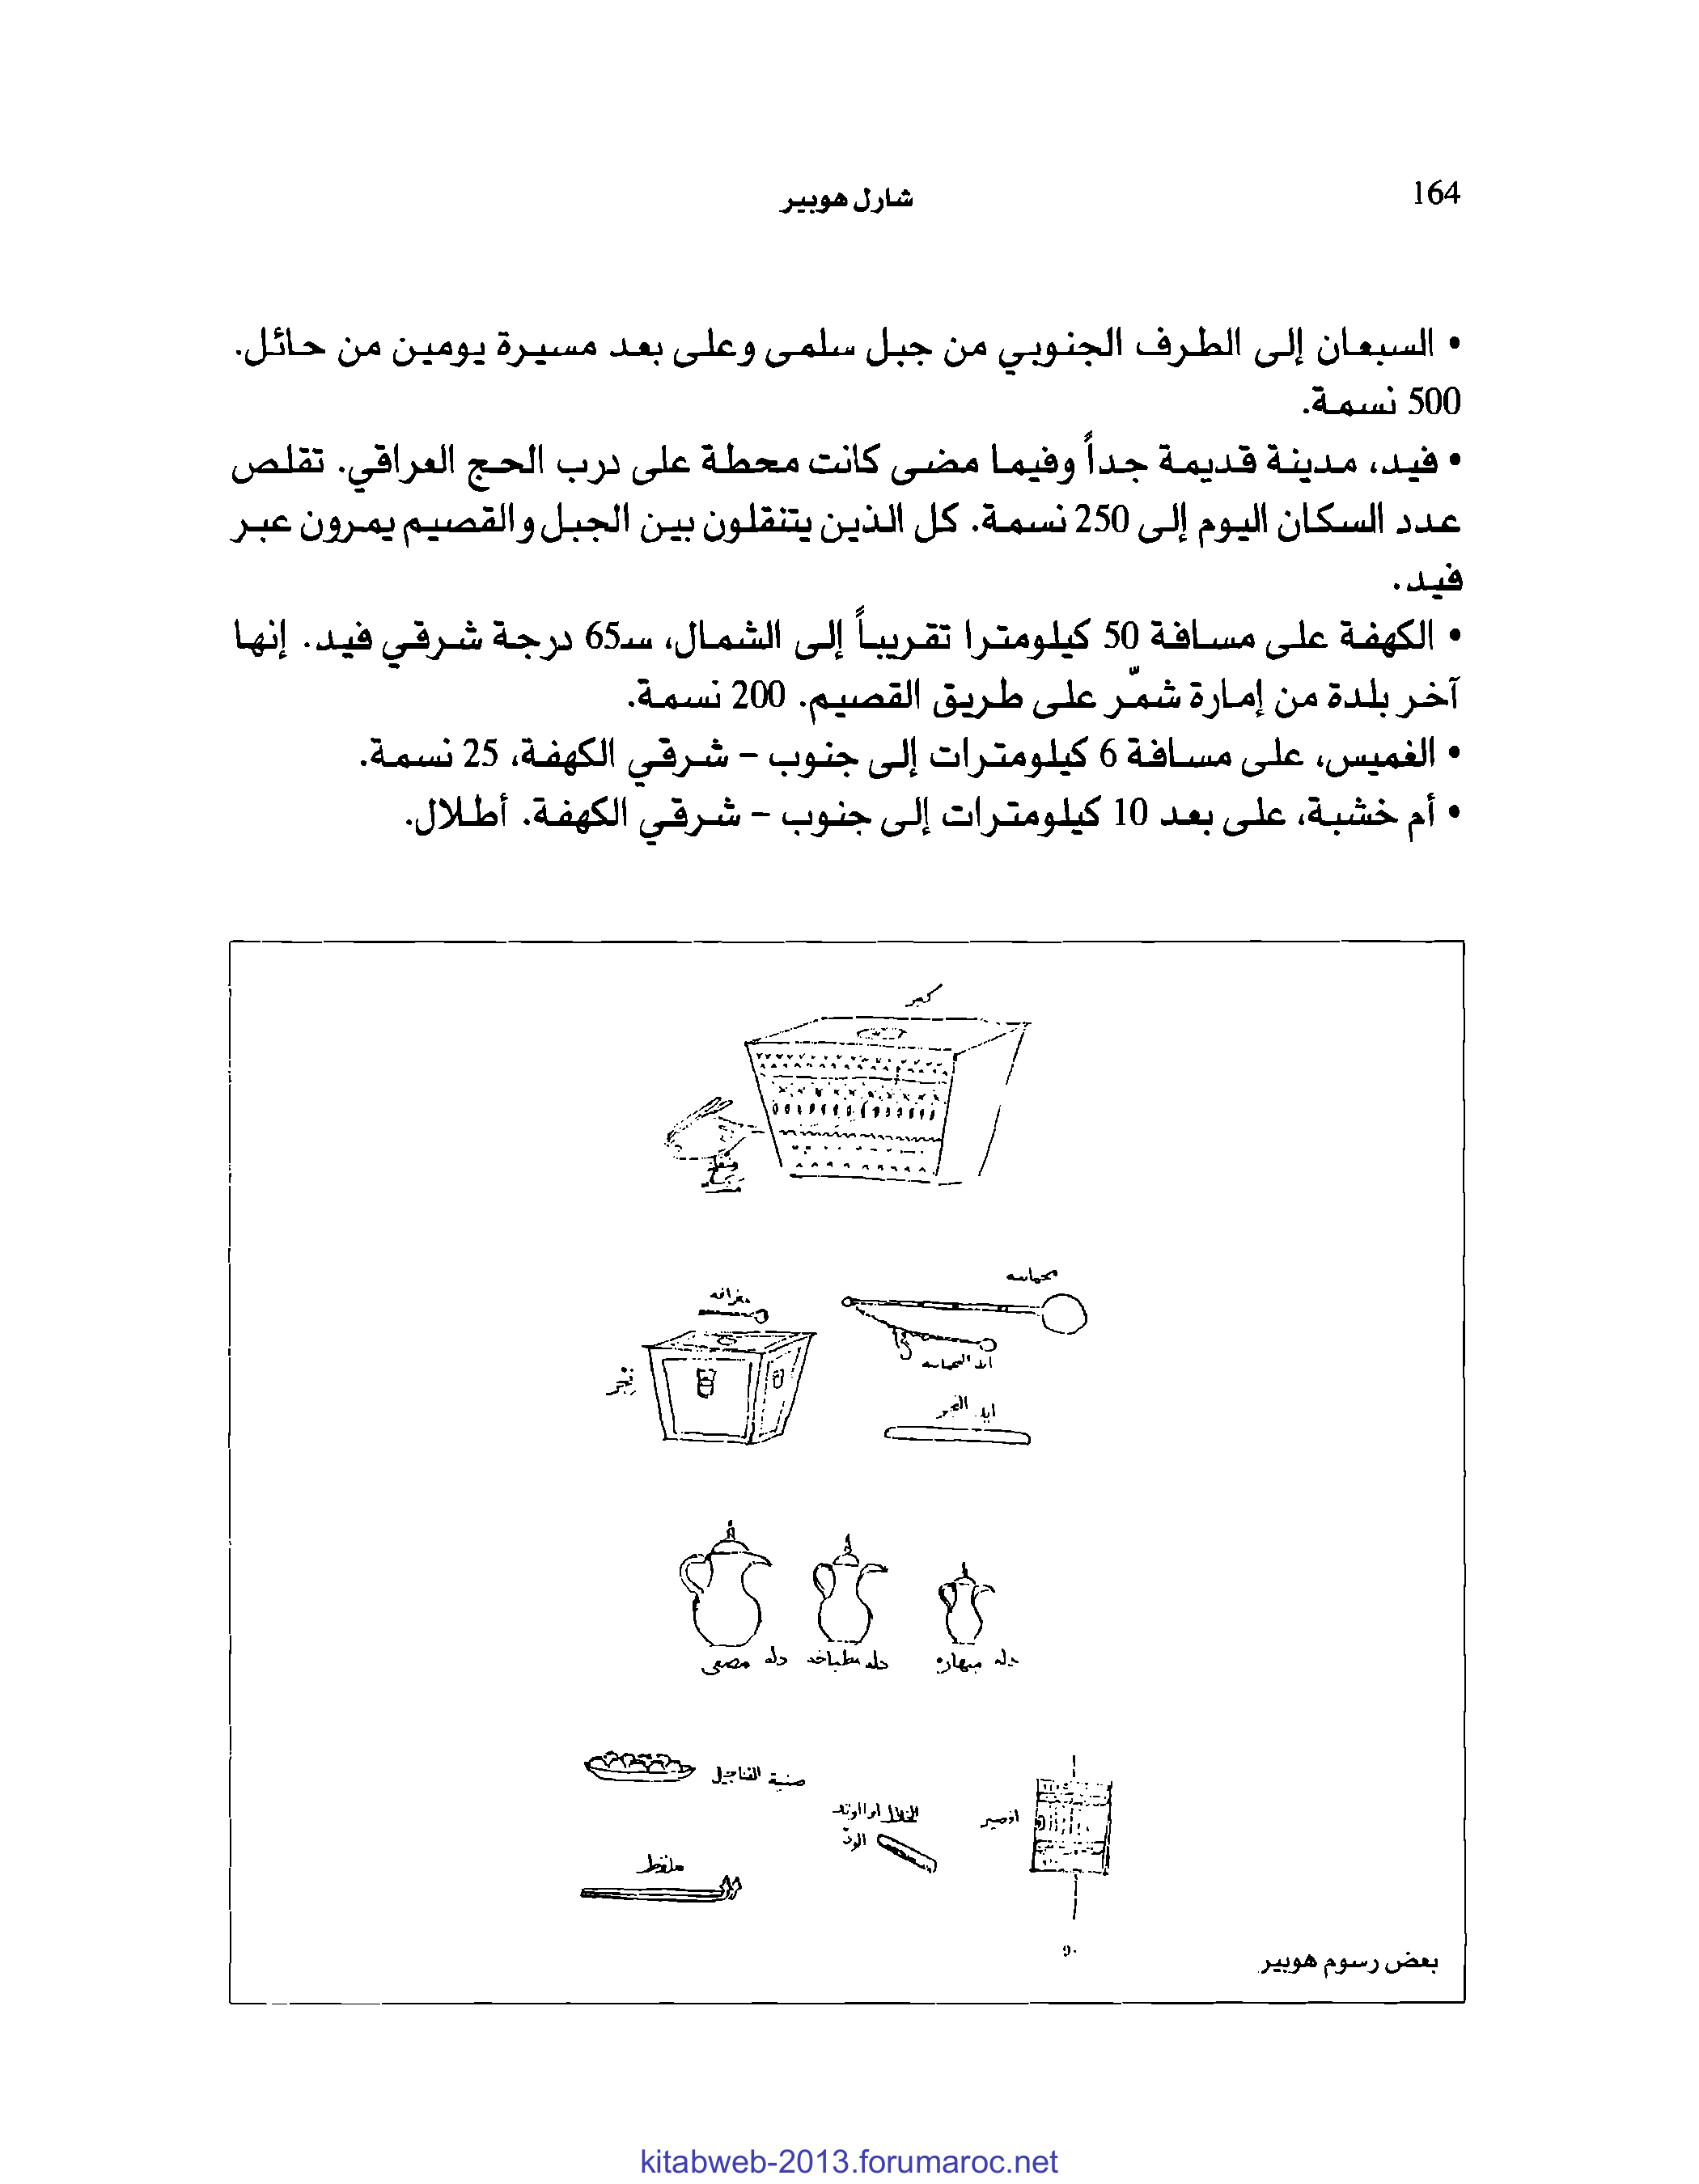 164
شارل هوبير
• السبعان إلى الطرف الجنوبي من جبل سلمى وعلى بعد مسيرة يومين من حائل.
500 نسمة.
• فيد، مدينة قديمة جداً وفيما مضى كانت محطة على درب الحج العراقي. تقلص
عدد السكان اليوم إلى 250 نسمة. كل الذين يتنقلون بين الجبل والقصيم يمرون عبر
فيد.
• الكهفة على مسافة 50 كيلومترا تقريباً إلى الشمال، سـ65 درجة شرقي فيد. إنها
آخر بلدة من إمارة شمّر على طريق القصيم. 200 نسمة.
• الغميس، على مسافة 6 كيلومترات إلى جنوب – شرقي الكهفة، 25 نسمة.
• أم خشبة، على بعد 10 كيلومترات إلى جنوب – شرقي الكهفة. أطلال.
محماسه
دله مبهاره
دله مطباخه
دله مصفى
صنية الفناجيل
ملقط
بعض رسوم هوبير
kitabweb-2013.forumaroc.net